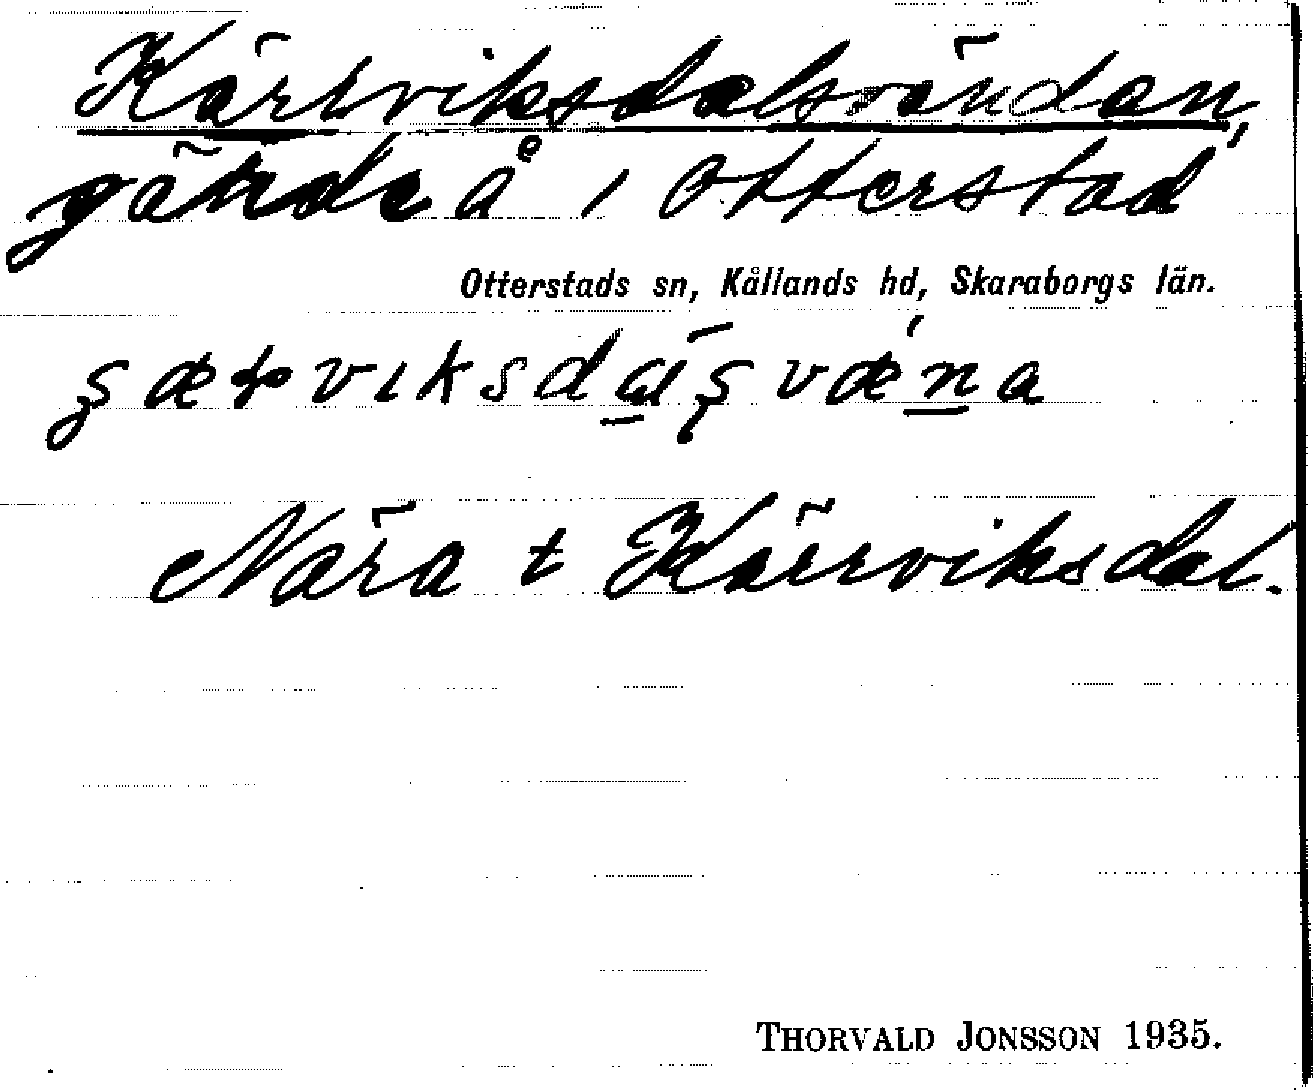 Kärrviksdalsvändan,
gärde å 1 Otterstad
Otterstads sn, Kållands hd, Skaraborgs län.
Nära t Kärrviksdal.
THORVALD JONSSON 1935.